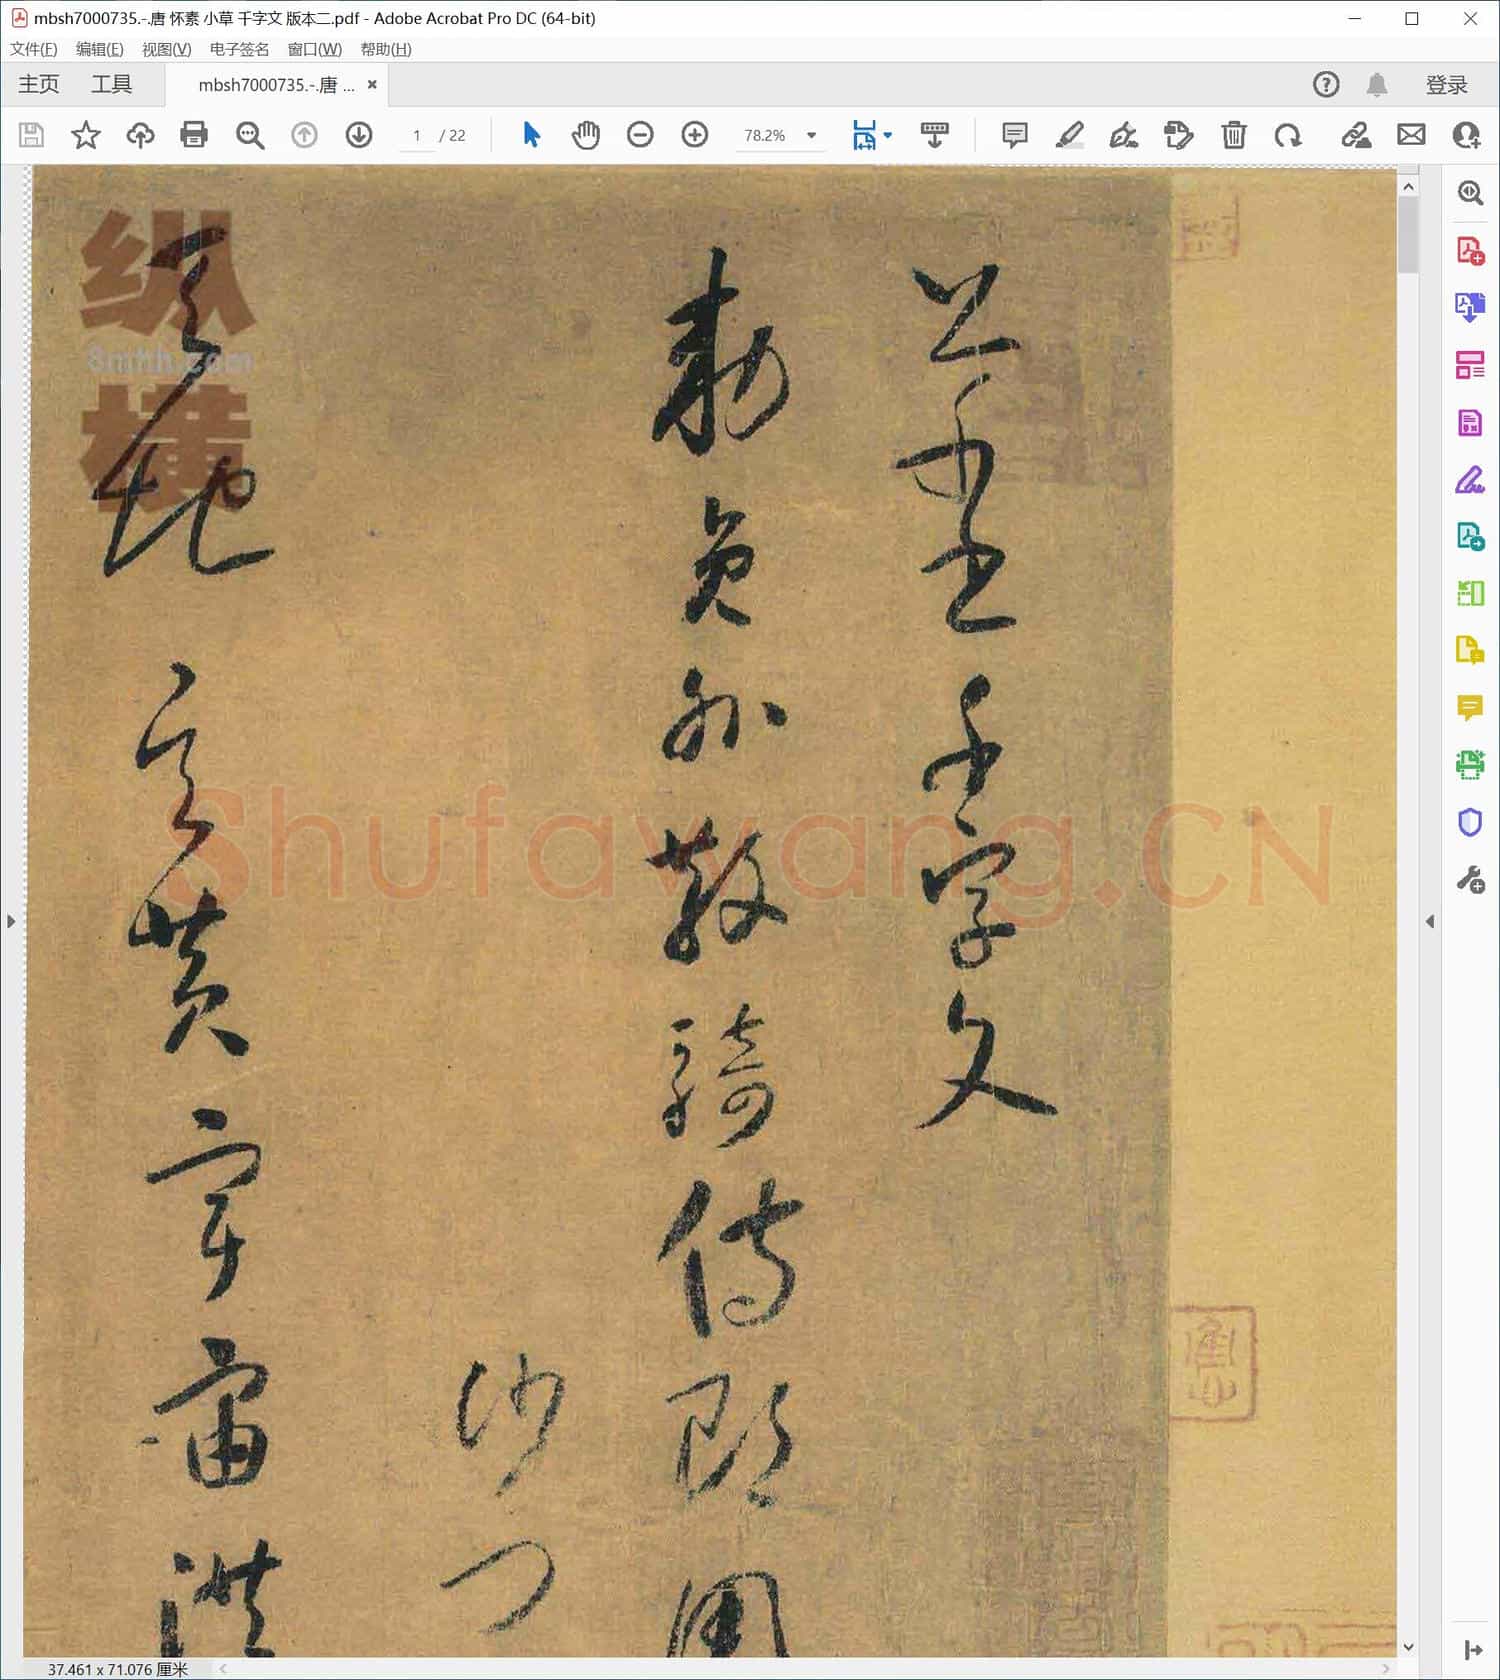 mbsh7000735.-.唐 怀素 小草 千字文 版本二.pdf - Adobe Acrobat Pro DC (64-bit)
文件(F) 编辑(E) 视图(V) 电子签名 窗口(W) 帮助(H)
主页 工具 mbsh7000735.-.唐 ... × 登录
1 / 22 78.2%
千字文
勅员外散骑侍郎周
沙门
天地玄黄宇宙洪
纵横
8mhh.com
Shufawang.CN
37.461 x 71.076 厘米